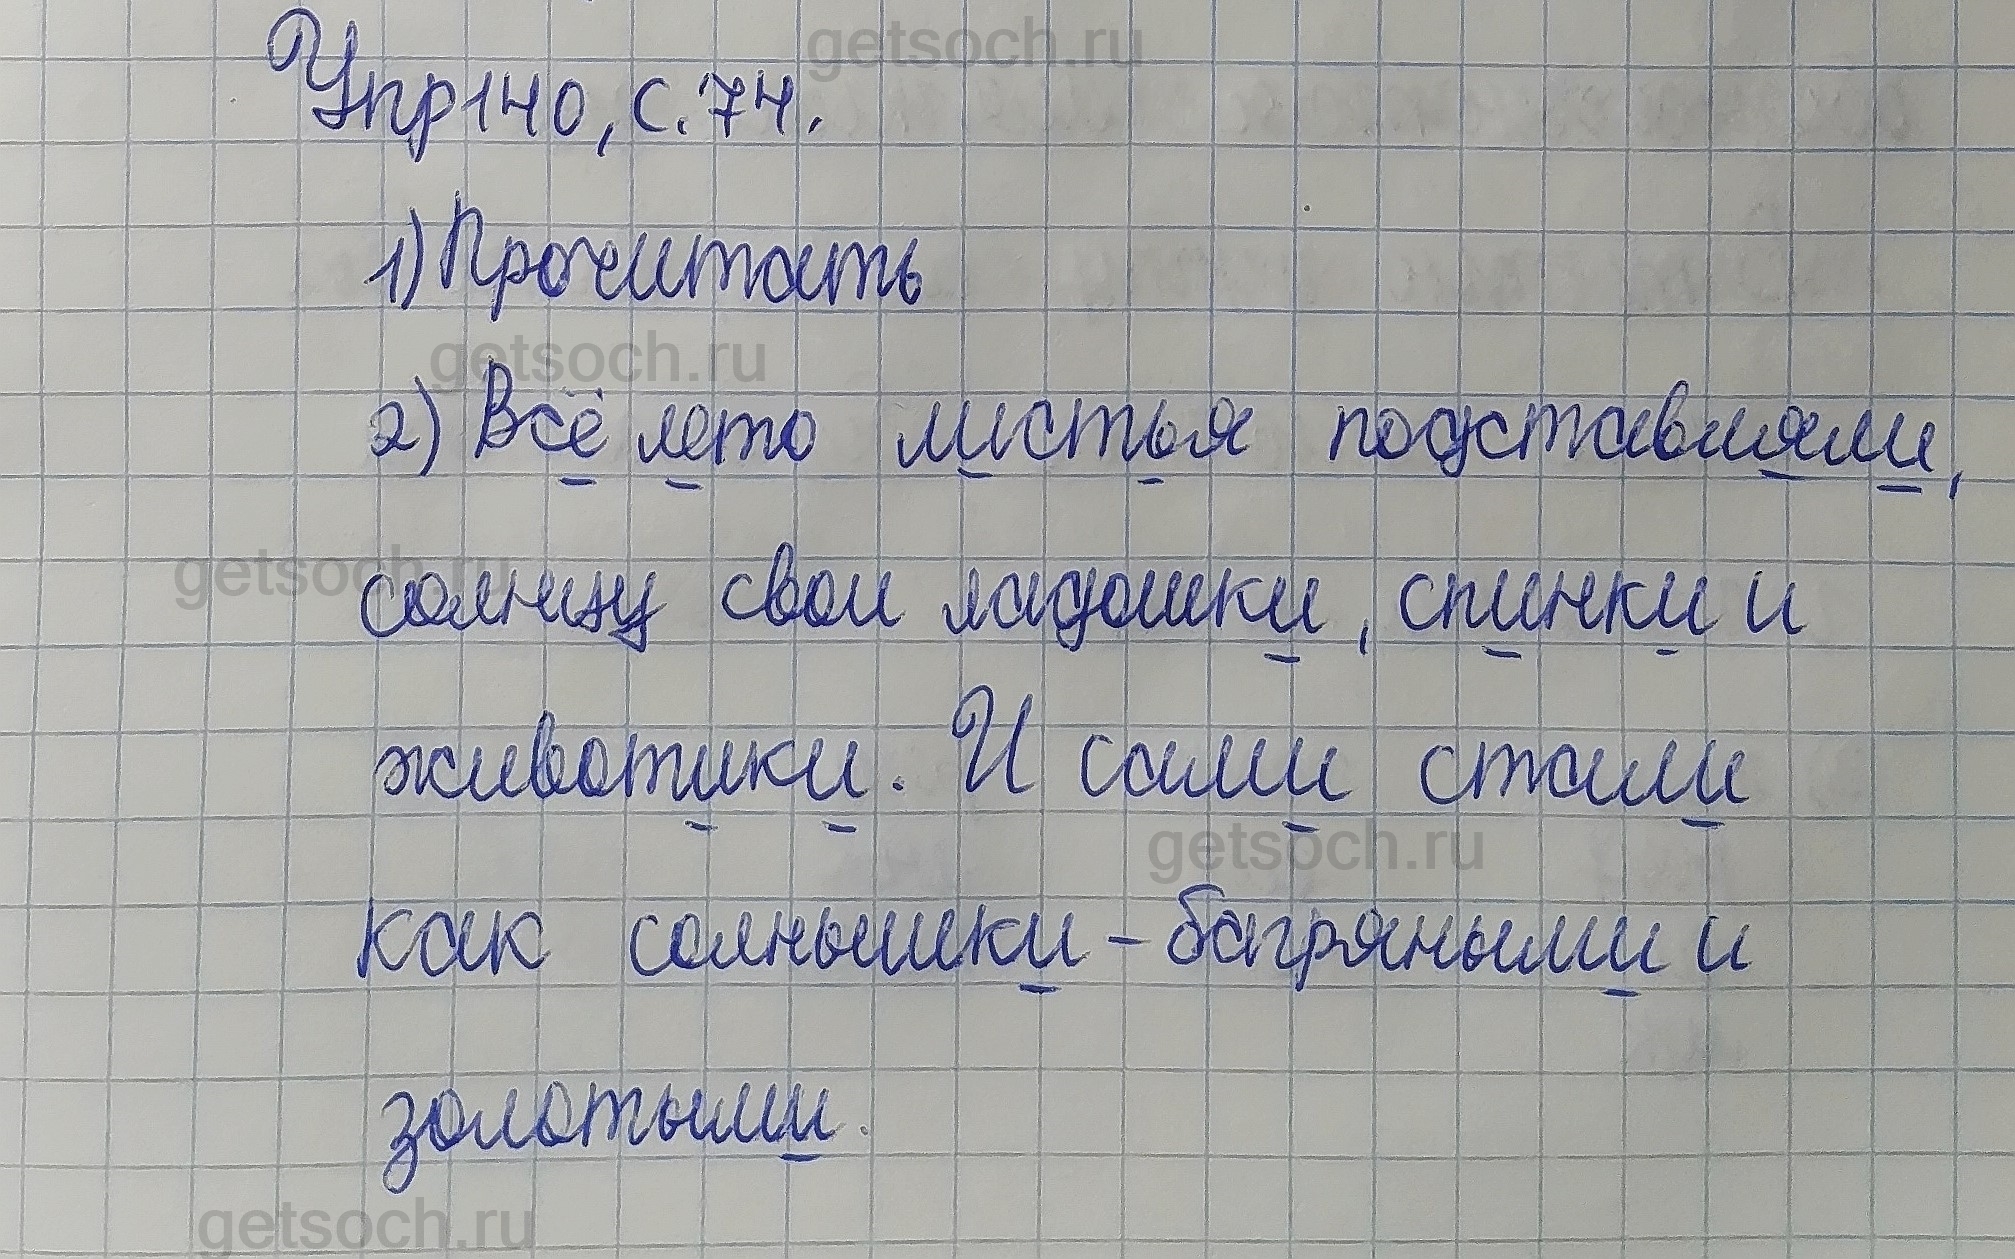 getsoch.ru
Упр140, с. 74.
1) Прочитать
getsoch.ru
2) Всё лето листья подставляли,
getsoch.ru
солнцу свои ладошки, спинки и
животики. И сами стали
getsoch.ru
как солнышки - багряными и
золотыми.
getsoch.ru